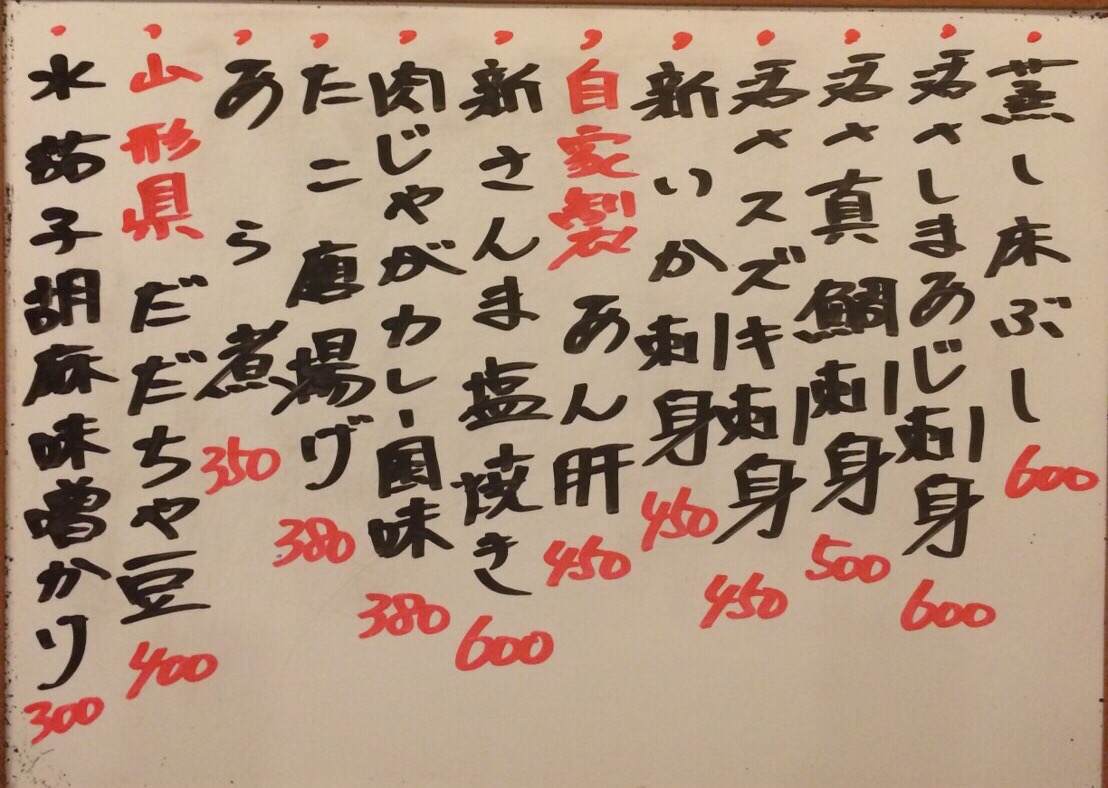 蒸し床ぶし 600
活〆しまあじ刺身 600
活〆真鯛刺身 500
活〆スズキ刺身 450
新いか刺身 450
自家製 あん肝 450
新さんま塩焼き 600
肉じゃがカレー風味 380
たこ唐揚げ 380
あら煮 350
山形県 だだちゃ豆 400
水茄子胡麻味噌かり 300